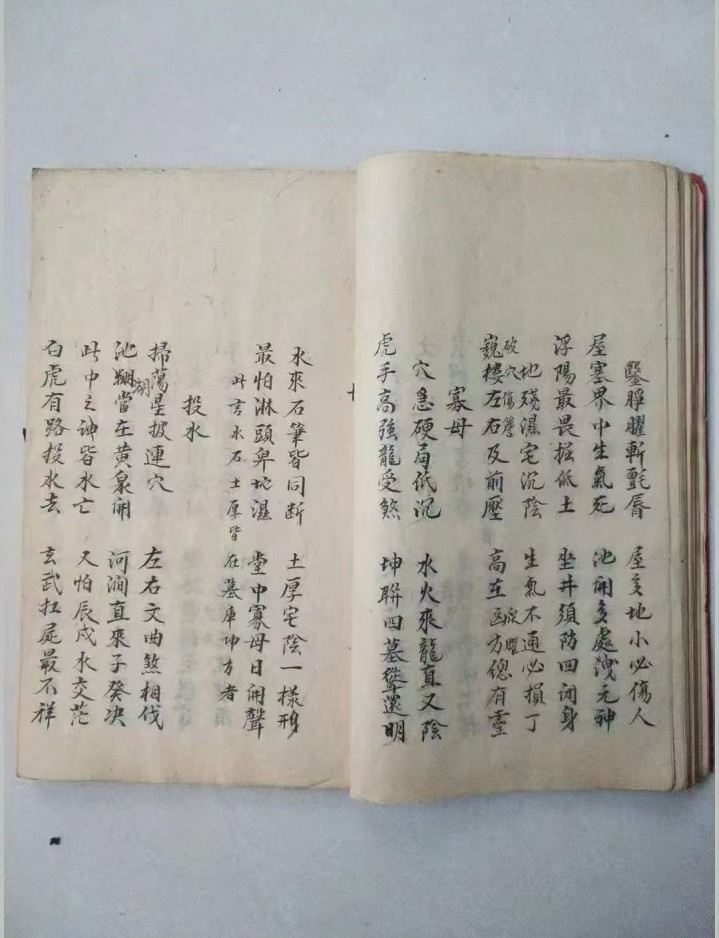 鑿脖曜斬氈唇 屋多地小必傷人
屋塞界中生氣死 池開多處洩元神
浮陽最畏掘低土 坐井須防四閉身
地殘濕宅沉陰 生氣不通必損丁
破穴傷簷 泪曜
巍樓左右及前壓 高在凶方總有
寡母
穴急硬局低沉 水火來龍直又陰
虎手高強龍受煞 坤聯四墓孽還明
十
水來石筆皆同斷 土厚宅陰一樣形
最怕淋頭卑地濕 堂中寡母日開聲
此言水石土厚皆在墓庫坤方者
投水
掃蕩星披連穴 左右文曲煞相伐
池湖當在黃泉開 河澗直來子癸決
此中之神皆水亡 又怕辰戌水交茫
白虎有路投水去 玄武扛屍最不祥